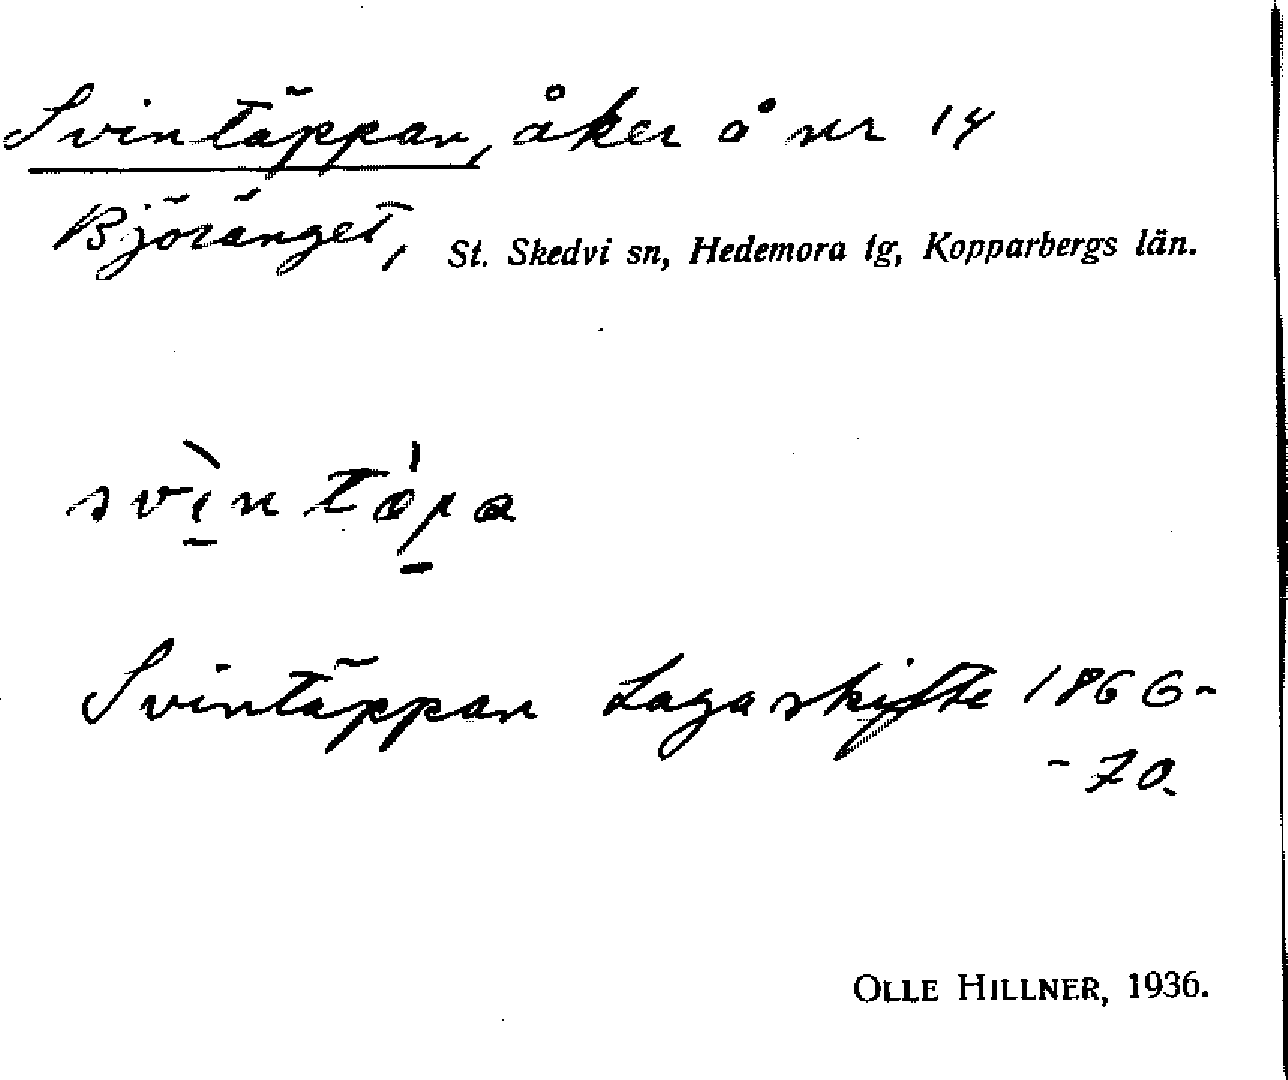 Svintäppan, åker å nr 14
Björänget, St. Skedvi sn, Hedemora tg, Kopparbergs län.
svìntæ̀pa
Svintäppan Laga skifte 1866-
-70.
OLLE HILLNER, 1936.